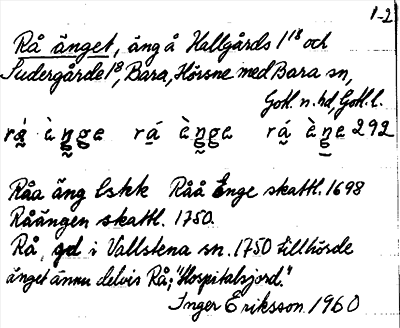 1-2
Rå änget, äng å Hallgårds 1¹⁸ och
Sudergårde 1⁸, Bara, Hörsne med Bara sn,
Gotl. n. hd, Gotl. l.
rá̰ àn̰ge rá àn̰ge rá àn̰e 292
Råa äng lskk Råå Enge skattl. 1698
Råängen skattl. 1750.
Rå, gd i Vallstena sn. 1750 tillhörde
änget ännu delvis Rå; "Hospitalsjord."
Inger Eriksson 1960